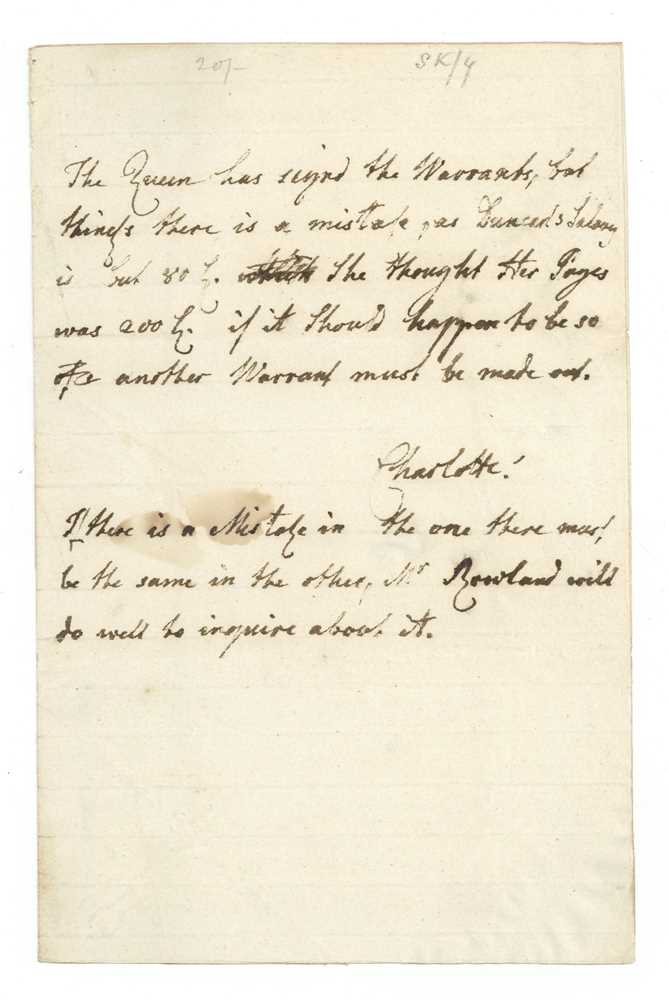 20/- SK/4
The Queen has signd the Warrants, but
thincks there is a mistake, as Duncan's Salary
is but 80 £. She thought Her Pages
was 200 £. if it Should happen to be so
another Warrant must be made out.
Charlotte.
If there is a Mistake in the one there must
be the same in the other, Mr Rowland will
do well to inquire about it.